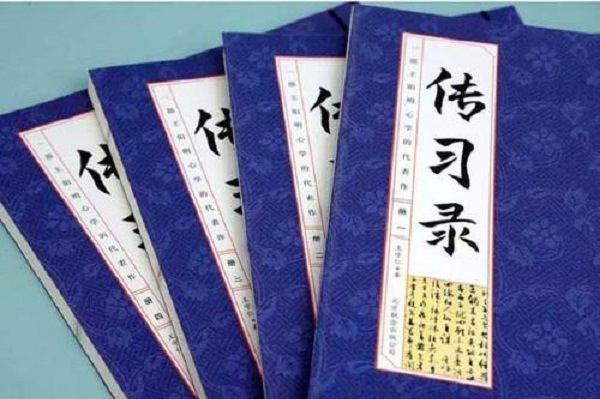 传习
一部王阳明心学的代表作
册四
传
一部王阳明心学的代表作
传
一部王阳明心学的代表作
册二
传习录
一部王阳明心学的代表作
册一
王守仁 著
北京联合出版公司